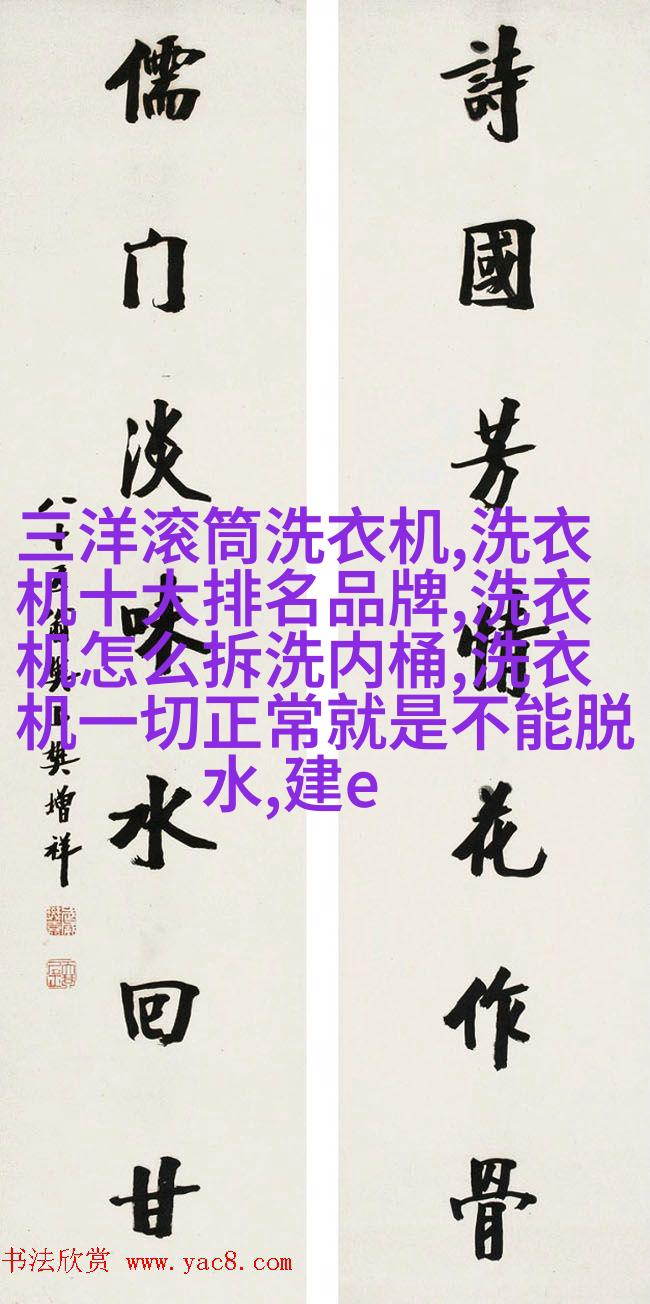 詩國芳情花作骨
儒门淡味水回甘
樊增祥
三洋滚筒洗衣机,洗衣
机十大排名品牌,洗衣
机怎么拆洗内桶,洗衣
机一切正常就是不能脱
水,建e
书法欣赏 www.yac8.com